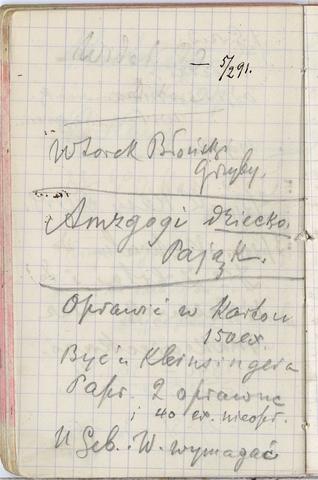 — 5/291.
Wtorek Błoński
Grzyby.
dziecko.
Pająk.
Oprawić w Karton
150 ex.
Być u Kleinsingera
Papr. 2 oprawne
i 40 ex. nieopr.
U Geb. W. wymagać